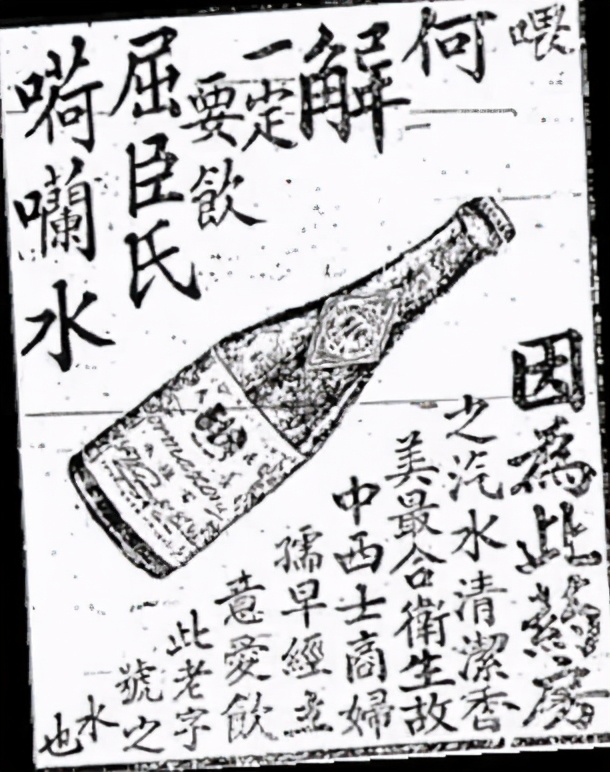 喂
何
解
一定
要飲
屈臣氏
嗬囒水
因為此葯房
之汽水清潔香
美最合衛生故
中西士商婦
孺早經主
意愛飲
此老字
號之
水
也